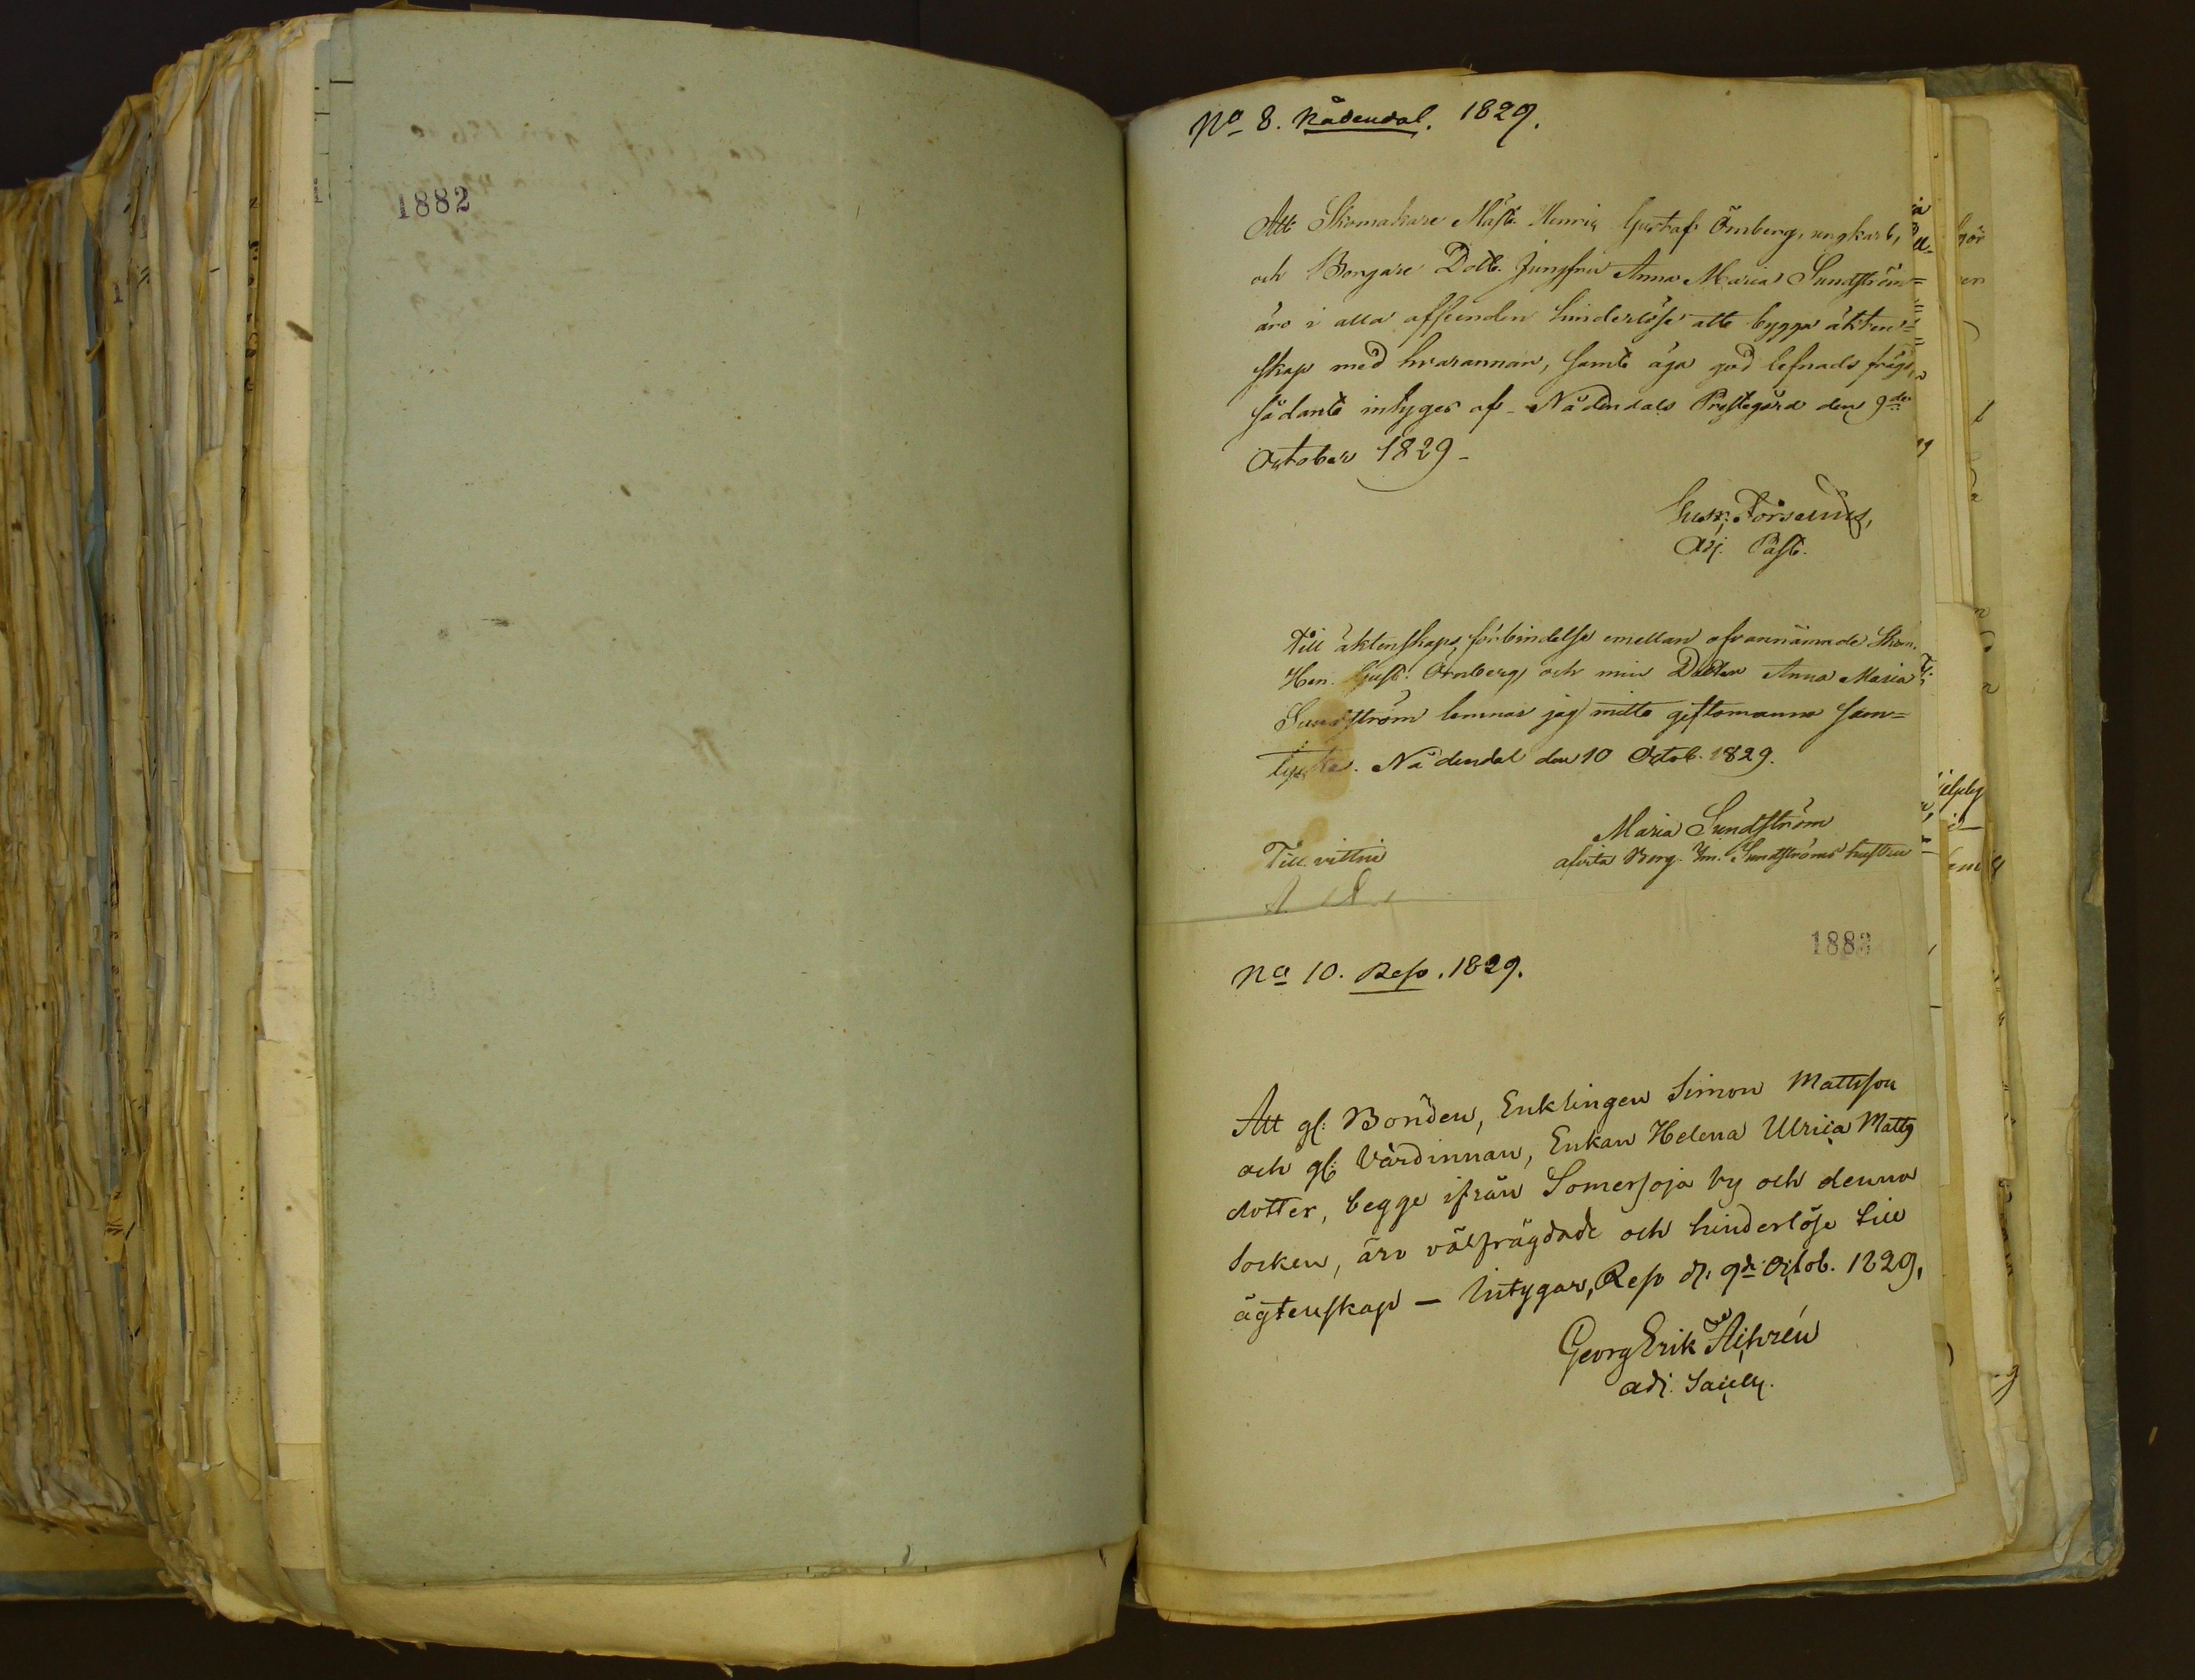 1882
No 8. Nådendal. 1829.
Att Skomakare Mäst. Henric Gustaf Örnberg, ungkarl,
och Borgare Dott. Jungfru Anna Maria Sundström
äro i alla afseenden hinderlöse att bygga äkten=
skap med hvarannan, samt äga god lefnads frägd,
sådant intyges af Nådendals Prestegård den 9de
October 1829
Adj. Past.
Till äktenskaps förbindelse emellan ofvannämnde Skom.
Hen. Gust. Örnberg och min Dotter Anna Maria
Sundström lemnar jag mitt giftomanna sam=
tycke. Nådendal den 10 Octob. 1829.
Maria Sundström
Till vittne
afvita Borg. Sundströms hustru
1883
No 10. Reso. 1829.
Att gl: Bonden, Enklingen Simon Mattsson
och gl: Värdinnan, Enkan Helena Ulrica Matts
dotter, begge ifrån Somersoja by och denna
Socken, äro välfrägdade och hinderlöse till
ägtenskap — Intygar, Reso d. 9de Octob. 1829,
Georg Erik
adj. Sacell.